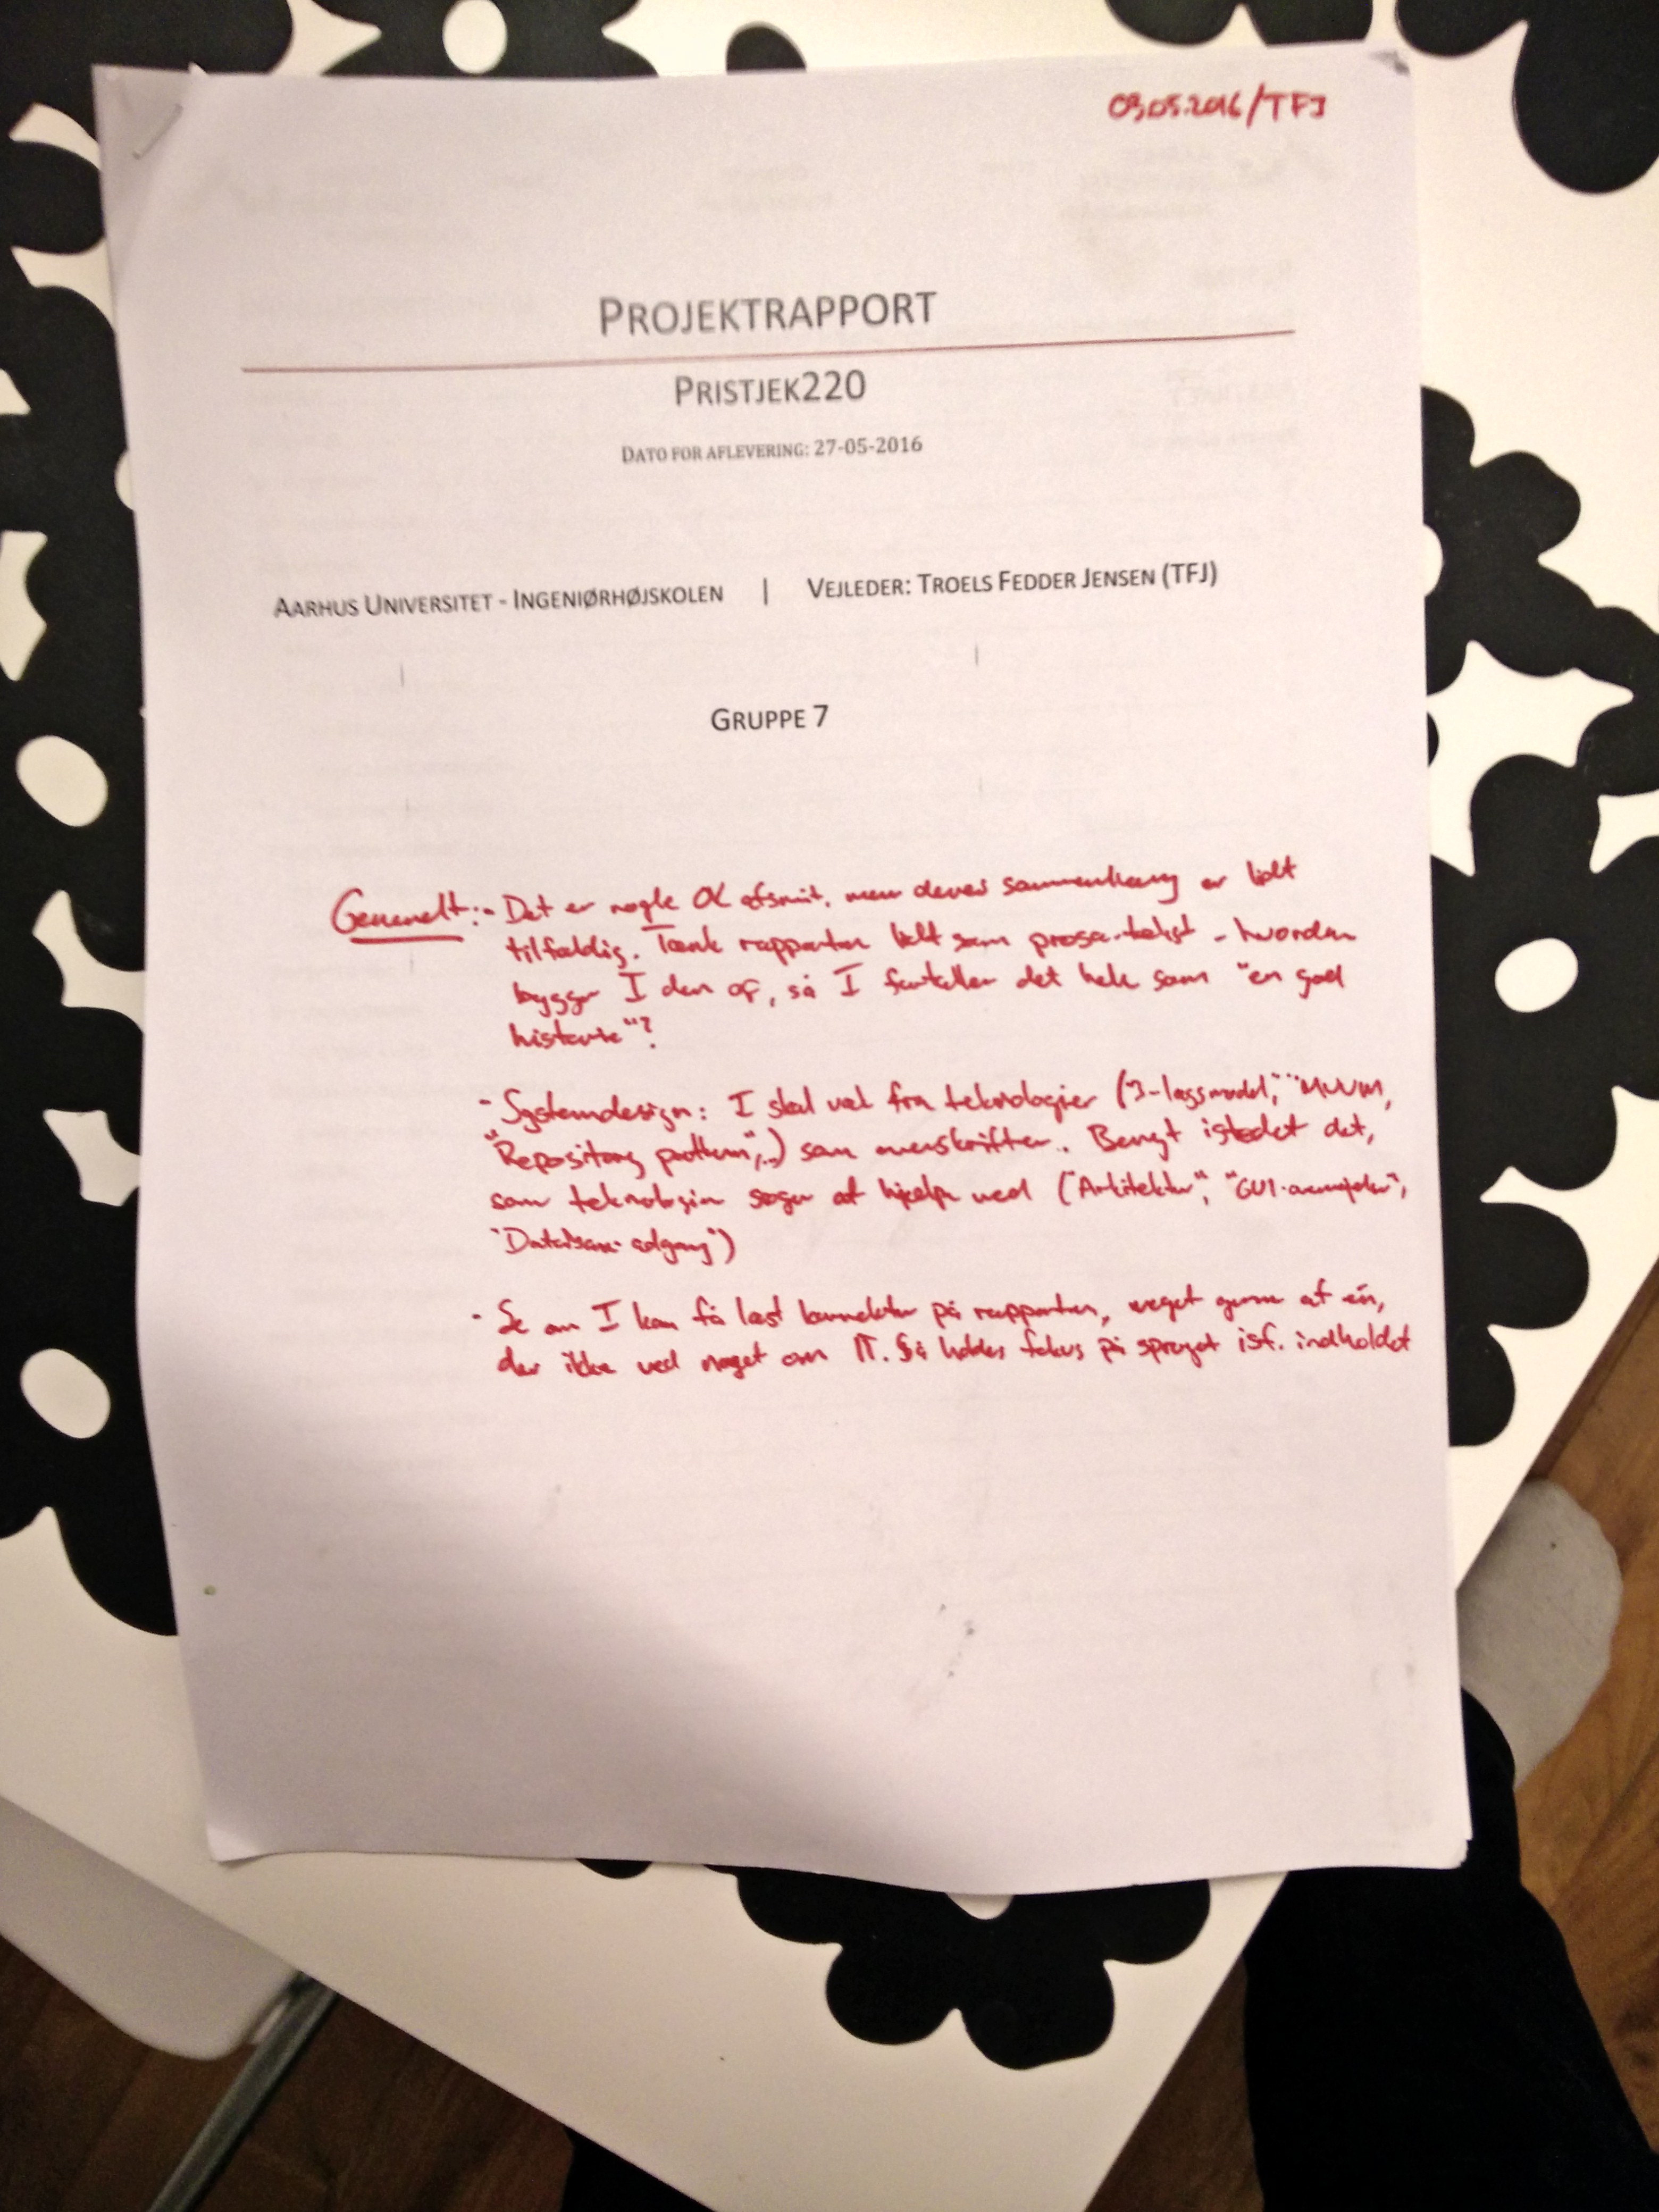 03.05.2016/TFJ
PROJEKTRAPPORT
PRISTJEK220
DATO FOR AFLEVERING: 27-05-2016
AARHUS UNIVERSITET - INGENIØRHØJSKOLEN | VEJLEDER: TROELS FEDDER JENSEN (TFJ)
GRUPPE 7
Generelt: - Det er nogle OK afsnit, men deres sammenhæng er lidt
tilfældig. Tænk rapporten lidt som prosa-tekst - hvordan
bygger I den op, så I fortæller det hele som "en god
historie"?
- Systemdesign: I skal væk fra teknologier ("3-lagsmodel", "MVVM",
"Repository pattern",..) som overskrifter. Benyt istedet det,
som teknologien søger at hjælpe med ("Arkitektur",
"Database adgang")
- Se om I kan få læst korrektur på rapporten, meget gerne af én,
der ikke ved noget om IT. Så holdes fokus på sproget ist. indholdet